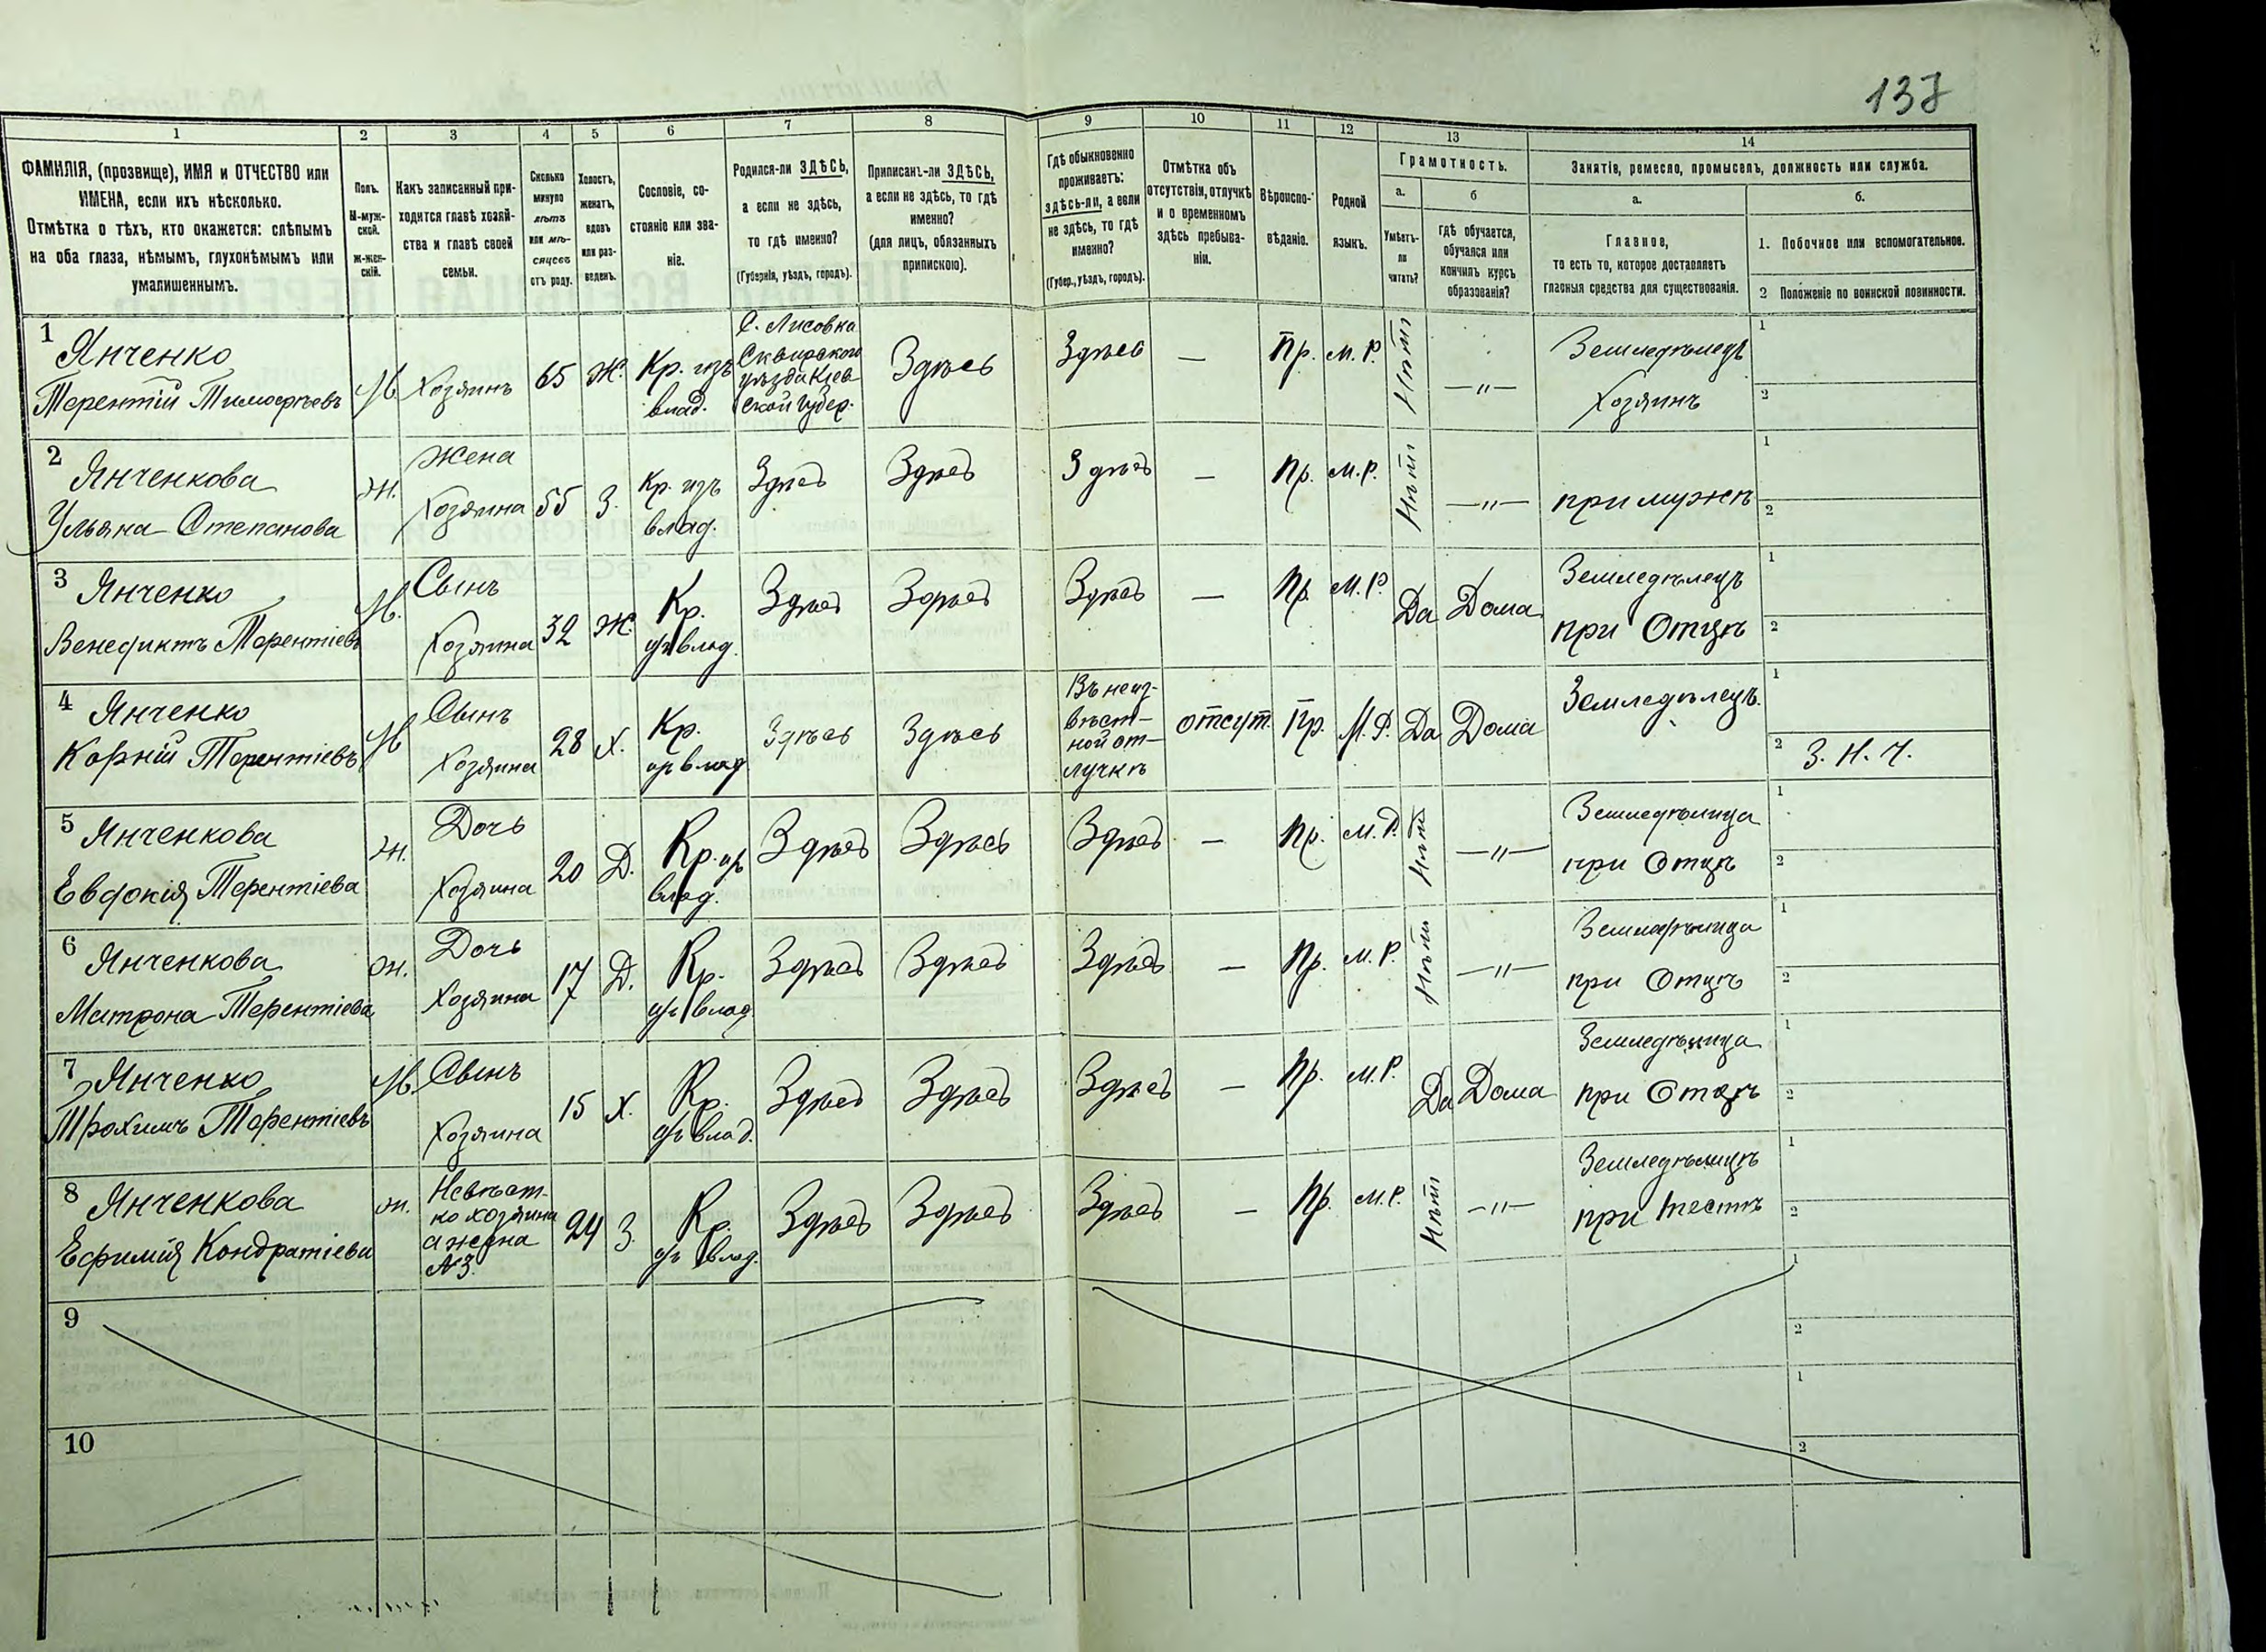 137
1 2 3 4 5 6 7 8 9 10 11 12 13 14
ФАМИЛІЯ, (прозвище), ИМЯ и ОТЧЕСТВО или
ИМЕНА, если ихъ нѣсколько.
Отмѣтка о тѣхъ, кто окажется: слѣпымъ
на оба глаза, нѣмымъ, глухонѣмымъ или
умалишеннымъ.
Полъ.
М-муж-
ской.
Ж-жен-
скій.
Какъ записанный при-
ходится главѣ хозяй-
ства и главѣ своей
семьи.
Сколько
минуло
лѣтъ
или мѣ-
сяцевъ
отъ роду.
Холостъ,
женатъ,
вдовъ
или раз-
веденъ.
Сословіе, со-
стояніе или зва-
ніе.
Родился-ли ЗДѢСЬ,
а если не здѣсь,
то гдѣ именно?
(Губернія, уѣздъ, городъ).
Приписанъ-ли ЗДѢСЬ,
а если не здѣсь, то гдѣ
именно?
(для лицъ, обязанныхъ
припискою).
Гдѣ обыкновенно
проживаетъ:
здѣсь-ли, а если
не здѣсь, то гдѣ
именно?
(Губер., уѣздъ, городъ).
Отмѣтка объ
отсутствіи, отлучкѣ
и о временномъ
здѣсь пребыва-
ніи.
Вѣроиспо-
вѣданіе.
Родной
языкъ.
Грамотность.
а.
Умѣетъ-
ли
читать?
б
гдѣ обучается,
обучался или
кончилъ курсъ
образованія?
Занятіе, ремесло, промыселъ, должность или служба.
а.
Главное,
то есть то, которое доставляетъ
главныя средства для существованія.
б.
1. Побочное или вспомогательное.
2 Положеніе по воинской повинности.
1 Янченко
Терентій Тимофѣевъ
М
Хозяинъ
65
Ж.
Кр. изъ
влад.
С. Лисовка
Сквирского
уѣзда Кіев
ской Губер.
Здѣсь
Здѣсь
—
Пр.
М. Р.
Нѣтъ
—"—
Земледѣлецъ
Хозяинъ
1
2
2 Янченкова
Ульяна Степанова
Ж.
Жена
Хозяина
55
З.
Кр. изъ
влад.
Здѣсь
Здѣсь
Здѣсь
—
Пр.
М. Р.
Нѣтъ
—"—
при мужѣ
1
2
3 Янченко
Венедиктъ Терентіевъ
М.
Сынъ
Хозяина
32
Ж.
Кр.
изъ влад.
Здѣсь
Здѣсь
Здѣсь
—
Пр.
М. Р.
Да
Дома
Земледѣлецъ
при Отцѣ
1
2
4 Янченко
Корній Терентіевъ
М
Сынъ
Хозяина
28
Х.
Кр.
изъ влад
Здѣсь
Здѣсь
Въ неиз-
вѣст-
ной от-
лучкѣ
отсут.
Пр.
М. Р.
Да
Дома
Земледѣлецъ.
1
2 З. Н. Ч.
5 Янченкова
Евдокія Терентіева
Ж.
Дочь
Хозяина
20
Д.
Кр. изъ
влад.
Здѣсь
Здѣсь
Здѣсь
—
Пр.
М. Р.
Нѣтъ
—"—
Земледѣлица
при Отцѣ
1
2
6 Янченкова
Матрона Терентіева
Ж.
Дочь
Хозяина
17
Д.
Кр.
изъ влад
Здѣсь
Здѣсь
Здѣсь
—
Пр.
М. Р.
Нѣтъ
—"—
Земледѣлица
при Отцѣ
1
2
7 Янченко
Трохимъ Терентіевъ
М.
Сынъ
Хозяина
15
Х.
Кр.
изъ влад.
Здѣсь
Здѣсь
Здѣсь
—
Пр.
М. Р.
Да
Дома
Земледѣлица
при Отцѣ
1
2
8 Янченкова
Ефимія Кондратіева
Ж.
Невѣст-
ка хозяина
а жена
№3.
24
З.
Кр.
изъ влад.
Здѣсь
Здѣсь
Здѣсь
—
Пр.
М. Р.
Нѣтъ
—"—
Земледѣлицъ
при тестѣ
1
2
9
1
2
10
1
2